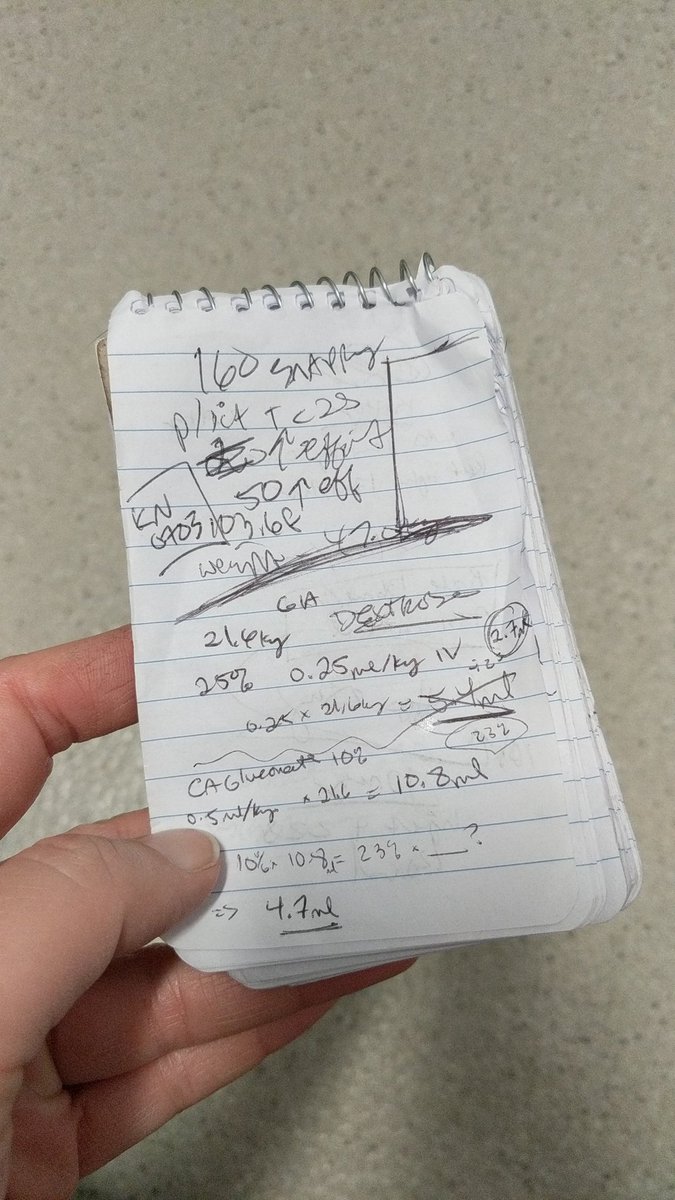 160 snappy
p/ict + <2s
↑ effint
50 ↑ eff
KN
103.6F
47.0kg
GIA
21.6kg Dextrose
25% 0.25ml/kg IV 2.7ml
0.25 x 21.6kg = 5.4ml
23%
CA Gluconate 10%
0.5ml/kg x 21.6 = 10.8ml
10% x 10.8ml = 23% x __?
=> 4.7ml